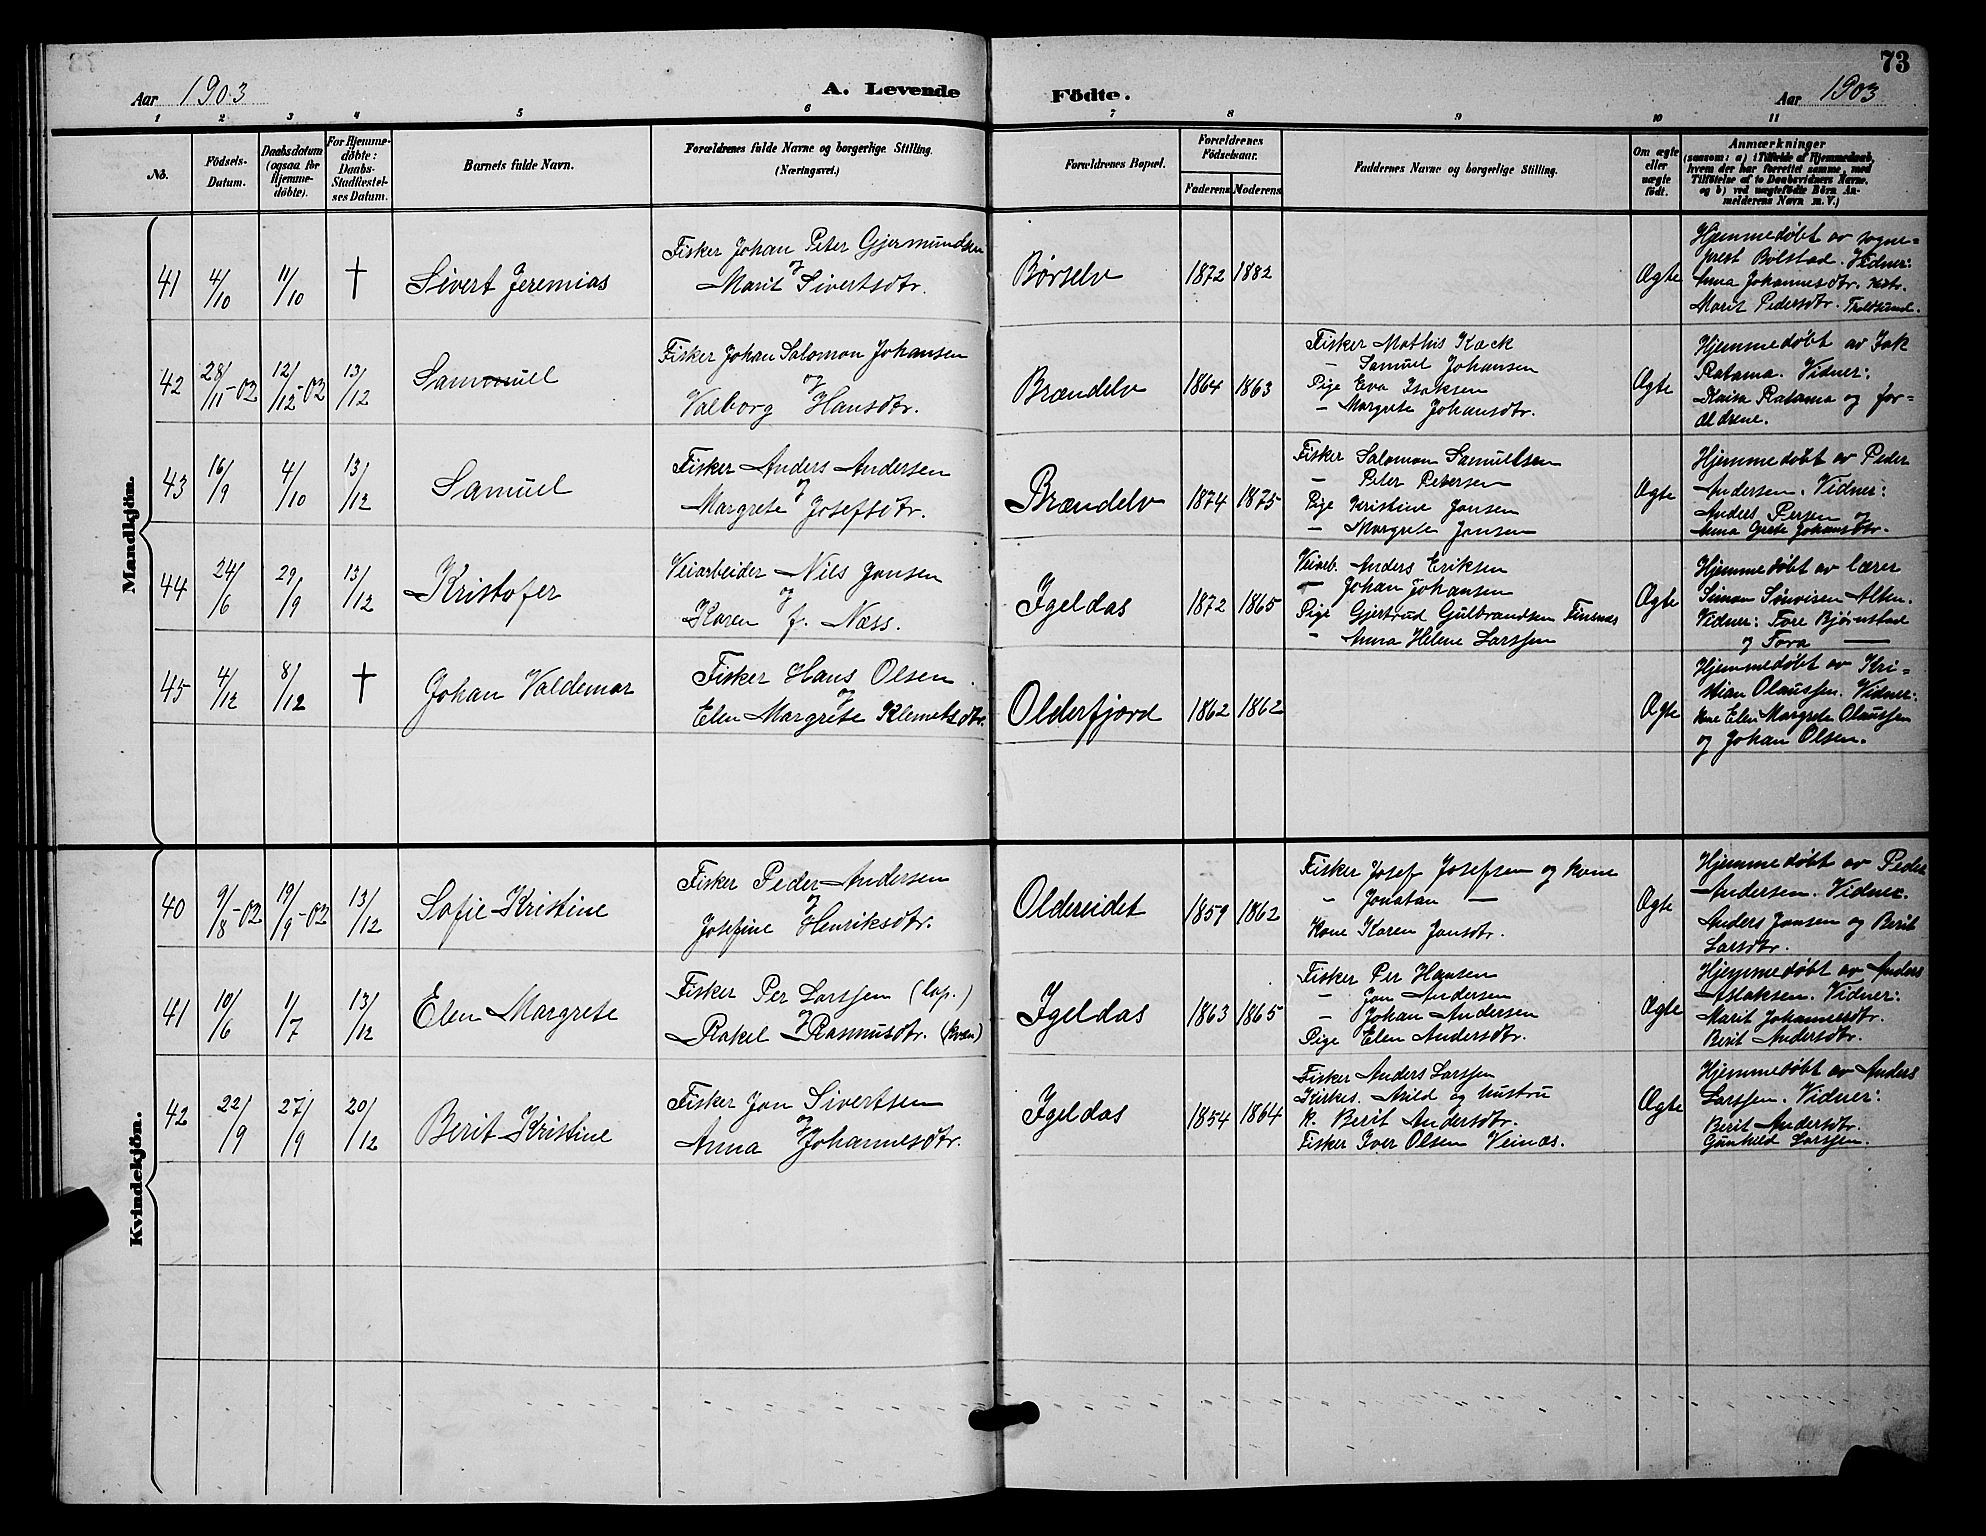 73
Aar 1903
A. Levende Födte.
Aar 1903
1 2 3 4 5 6 7 8 9 10 11
No.
Födsels-
Datum.
Daabsdatum
(ogsaa for
Hjemme-
döbte).
For Hjemme-
döbte:
Daabs-
Stadfæstel-
ses Datum.
Barnets fulde Navn.
Forældrenes fulde Navne og borgerlige Stilling.
(Næringsvei.)
Forældrenes Bopæl.
Forældrenes
Födselsaar.
Faderens Moderens
Faddernes Navne og borgerlige Stilling.
Om ægte
eller
uægte
födt.
Anmærkninger
(saasom: a) i Tilfælde af Hjemmedaab,
hvem der har forrettet samme, med
Tilföielse af to Daabsvidners Navne,
og b) ved uægtefödte Börn An-
melderens Navn m. V.)
Mandkjön.
41
4/10
11/10
†
Sivert Jeremias
Fisker Johan Peter Gjermundsen
og
Marit Sivertsdtr.
Børselv
1872 1882
Ægte
Hjemmedøbt av sogne-
prest Bolstad. Vidner:
Anna Johannesdtr.
Marit Pedersdtr.
42
28/11-02
12/12-02
13/12
Sammuel
Fisker Johan Salomon Johansen
og
Valborg Hansdtr.
Brændelv
1864 1863
Fisker Mathis Kæck
– Samuel Johansen
Pige Eva Isaksen
– Margrete Johansdtr.
Ægte
Hjemmedøbt av Isak
Ratama. Vidner:
Kaisa Ratama og for-
ældrene.
43
16/9
4/10
13/12
Samuel
Fisker Anders Andersen
og
Margrete Josefsdtr.
Brændelv
1874 1875
Fisker Salomon Samuelsen
– Peter Petersen
Pige Kristine Jansen
– Margrete Jansen
Ægte
Hjemmedøbt av Peder
Andersen. Vidner:
Anders Persen og
Anna Grete Johansdtr.
44
24/6
29/9
13/12
Kristofer
Veiarbeider Nils Jansen
og
Karen f. Næss.
Igeldas
1872 1865
Veiarb. Anders Eriksen
– Johan Johansen
Pige Gjertrud Gulbrandsen Finsnæs
– Anna Helene Larssen
Ægte
Hjemmedøbt av lærer
Simon Alten.
Vidner: Tore Bjørnstad
og Tora —
45
4/12
8/12
†
Johan Valdemar
Fisker Hans Olsen
og
Elen Margrete Klemetsdtr.
Olderfjord
1862 1862
Ægte
Hjemmedøbt av Kri-
stian Olaussen. Vidner:
kone Elen Margrete Olaussen
og Johan Olsen.
Kvindekjön.
40
9/8-02
19/9-02
13/12
Sofie Kristine
Fisker Peder Andersen
og
Josefine Henriksdtr.
Oldereidet
1859 1862
Fisker Josef Josefsen og kone
– Jonatan —
Kone Karen Jansdtr.
Ægte
Hjemmedøbt av Peder
Andersen. Vidner.
Anders Jansen og Berit
Larsdtr.
41
10/6
1/7
13/12
Elen Margrete
Fisker Per Larssen (lap.)
og
Rakel Rasmusdtr. (kvæn)
Igeldas
1863 1865
Fisker Per Hansen
– Jon Andersen
– Johan Andersen
Pige Elen Andersdtr.
Ægte
Hjemmedøbt av Anders
Aslaksen. Vidner:
Marit Johannesdtr.
Berit Andersdtr.
42
22/9
27/9
20/12
Berit Kristine
Fisker Jon Sivertsen
og
Anna Johannesdtr.
Igeldas
1854 1864
Fisker Anders Larssen
Kirkes. Arild og hustru
k. Berit Andersdtr.
Fisker Iver Olsen Veinæs.
Ægte
Hjemmedøbt av Anders
Larssen. Vidner:
Berit Andersdtr.
Gunhild Larssen.